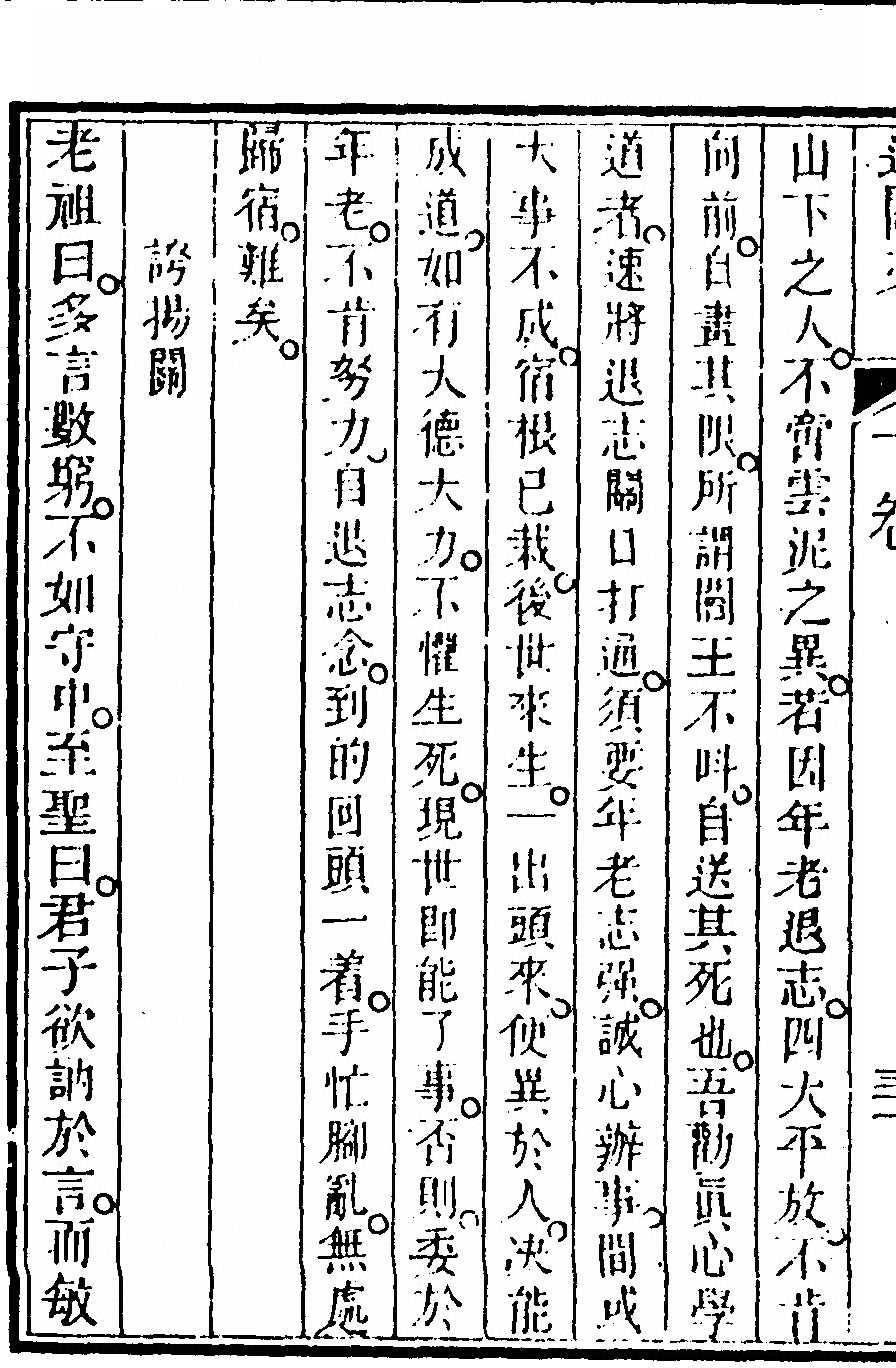 通關文 卷一 三一
山下之人。不啻雲泥之異。若因年老退志。四大平放。不肯
向前。自畫其限。所謂閻王不叫。自送其死也。吾勸眞心學
道者。速將退志關口打通。須要年老志强。誠心辦事。間或
大事不成。宿根已栽。後世來生。一出頭來。便異於人。决能
成道。如有大德大力。不懼生死。現世即能了事。否則。委於
年老。不肯努力。自退志念。到的回頭一着。手忙腳亂。無處
歸宿。難矣。
誇揚關
老祖曰。多言數窮。不如守中。至聖曰。君子欲訥於言。而敏